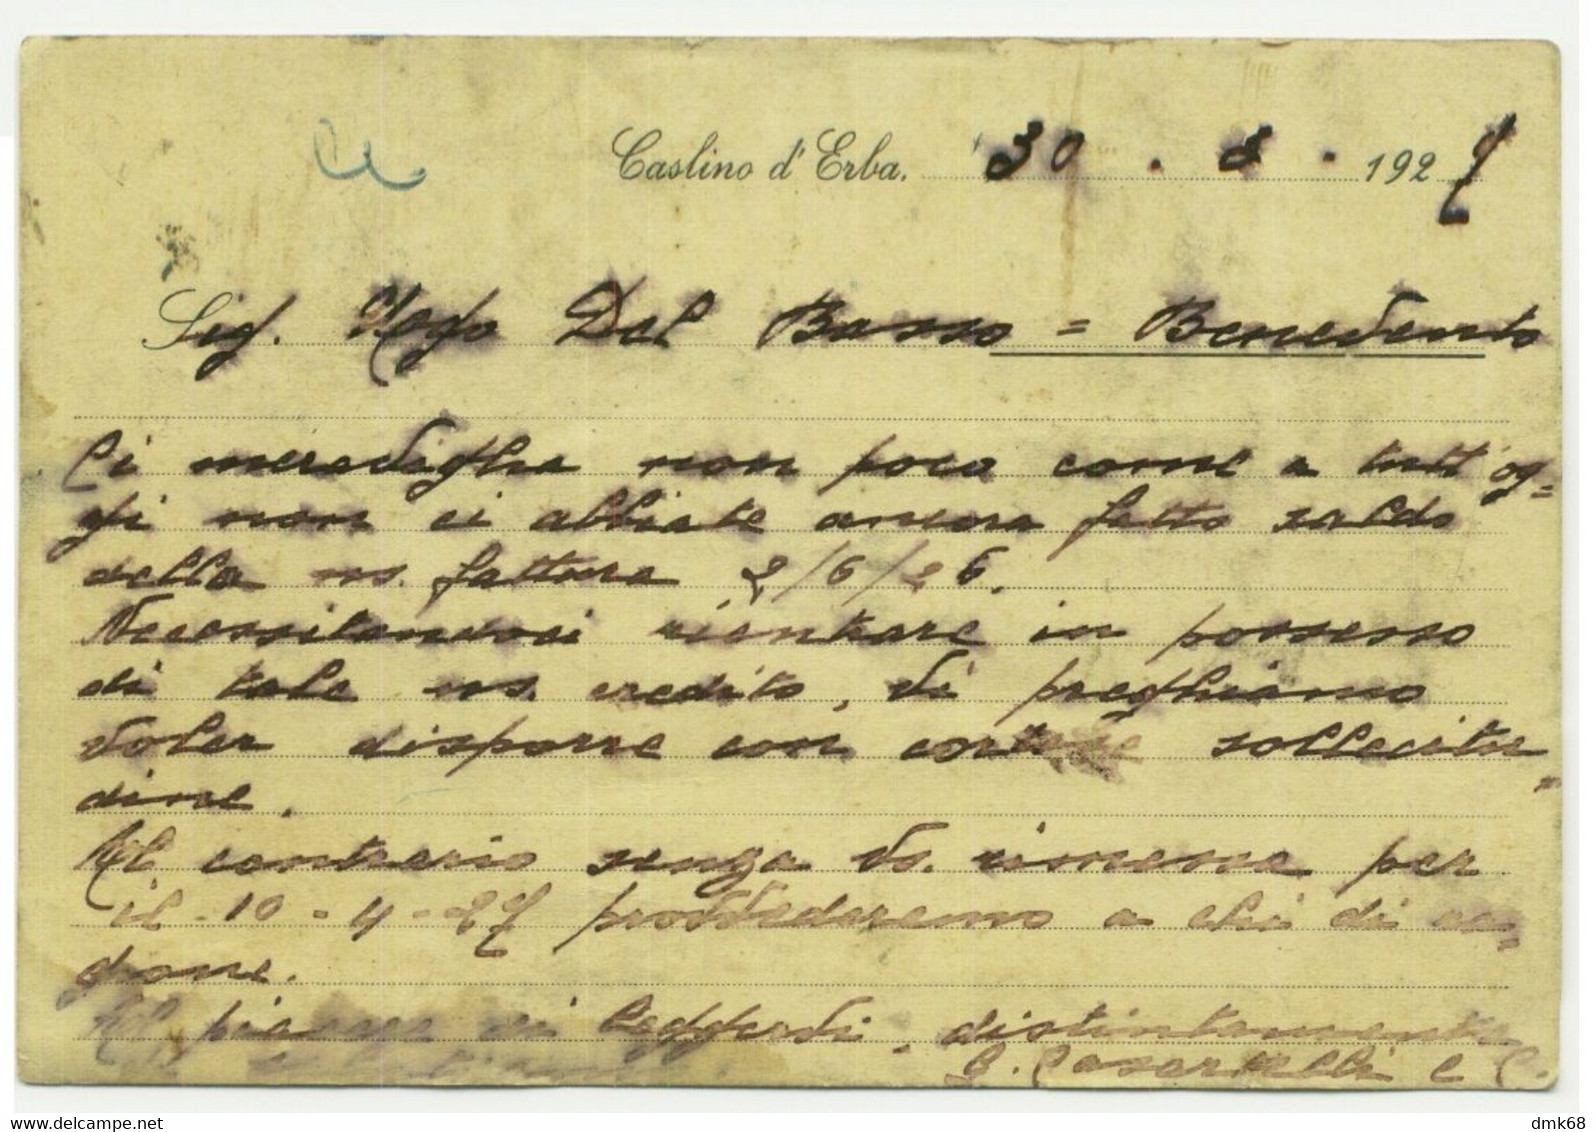 Caslino d'Erba. 30 . 3 . 1927
Sig. Ugo Del Basso = Benevento
Ci meraviglia non poco come a tutt'og=
gi non ci abbiate ancora fatto saldo
della ns. fattura 2/6/26.
Necessitandoci rientrare in possesso
di tale ns. credito, Vi preghiamo
voler disporre con cortese sollecitu=
dine.
Al contrario senza Vs. rimessa per
il 10-4-27 provvederemo a chi di ra=
gione.
Al piacere di leggervi, distintamente
G. Casartelli e C.
www.delcampe.net
dmk68